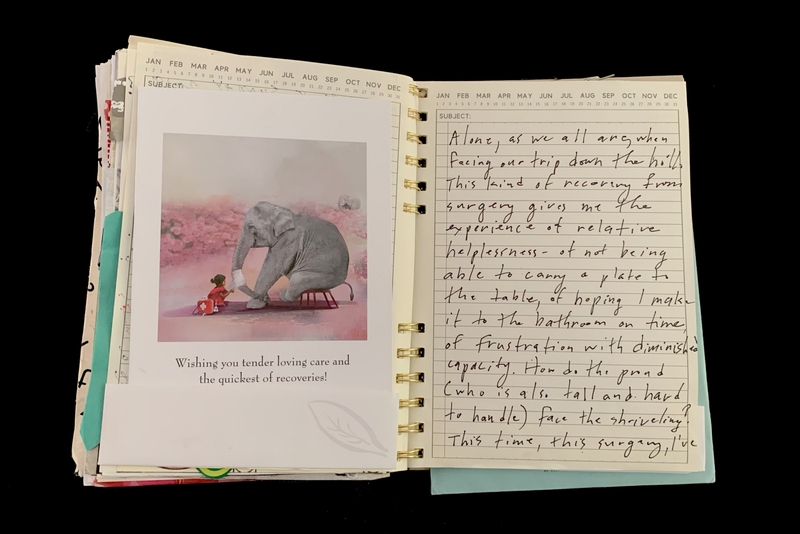 JAN FEB MAR APR MAY JUN JUL AUG SEP OCT NOV DEC
1 2 3 4 5 6 7 8 9 10 11 12 13 14 15 16 17 18 19 20 21 22 23 24 25 26 27 28 29 30 31
SUBJECT:
Wishing you tender loving care and
the quickest of recoveries!
JAN FEB MAR APR MAY JUN JUL AUG SEP OCT NOV DEC
1 2 3 4 5 6 7 8 9 10 11 12 13 14 15 16 17 18 19 20 21 22 23 24 25 26 27 28 29 30 31
SUBJECT:
Alone, as we all are, when
facing our trip down the hill.
This kind of recovery from
surgery gives me the
experience of relative
helplessness - of not being
able to carry a plate to
the table, of hoping I make
it to the bathroom on time,
of frustration with diminished
capacity. How do the proud
(who is also tall and hard
to handle) face the shriveling?
This time, this surgery, I've